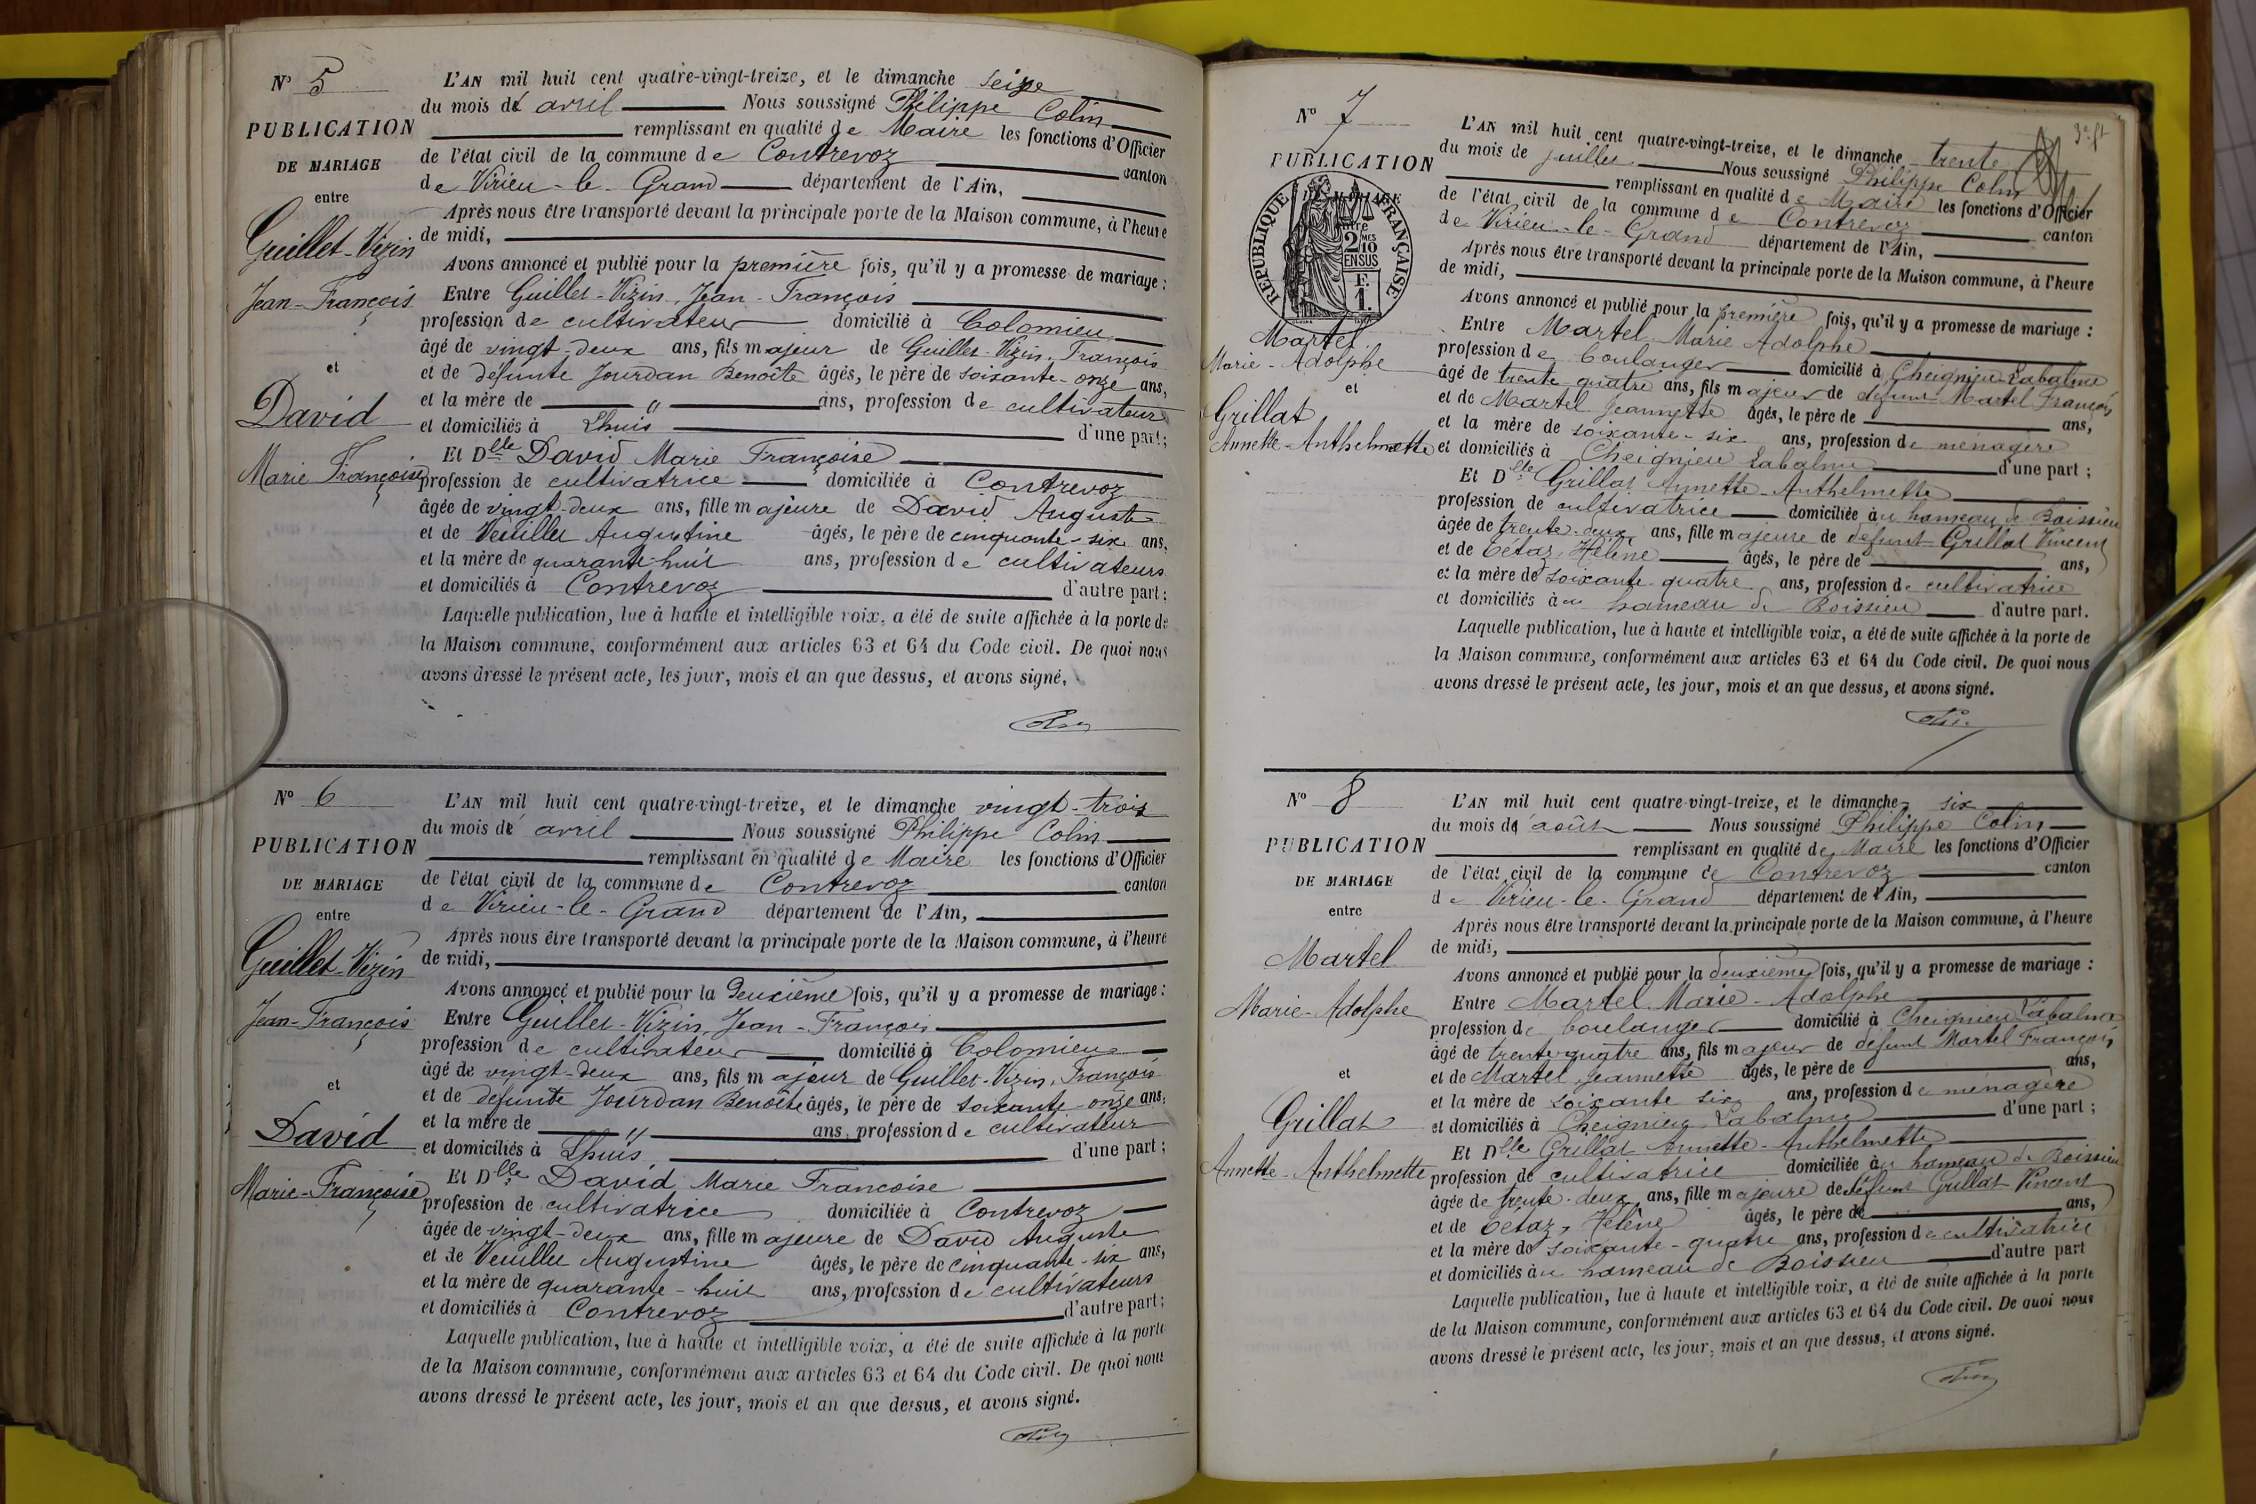 N° 5
PUBLICATION
DE MARIAGE
entre
Guillet-Vizin
Jean-François
et
David
Marie Françoise
L'AN mil huit cent quatre-vingt-treize, et le dimanche seize
du mois d'avril Nous soussigné Philippe Colin
remplissant en qualité de Maire les fonctions d'Officier
de l'état civil de la commune de Contrevoz canton
de Virieu-le-Grand département de l'Ain,
Après nous être transporté devant la principale porte de la Maison commune, à l'heure
de midi,
Avons annoncé et publié pour la première fois, qu'il y a promesse de mariage :
Entre Guillet-Vizin, Jean-François
profession de cultivateur domicilié à Colomieu
âgé de vingt-deux ans, fils majeur de Guillet-Vizin, François
et de défunte Jourdan Benoîte âgés, le père de soixante-onze ans,
et la mère de " ans, profession de cultivateur
et domiciliés à Lhuis d'une part;
Et Dlle David Marie Françoise
profession de cultivatrice domiciliée à Contrevoz
âgée de vingt-deux ans, fille majeure de David Auguste
et de Veuillet Augustine âgés, le père de cinquante-six ans,
et la mère de quarante-huit ans, profession de cultivateurs
et domiciliés à Contrevoz d'autre part;
Laquelle publication, lue à haute et intelligible voix, a été de suite affichée à la porte de
la Maison commune, conformément aux articles 63 et 64 du Code civil. De quoi nous
avons dressé le présent acte, les jour, mois et an que dessus, et avons signé.
Colin
N° 6
PUBLICATION
DE MARIAGE
entre
Guillet-Vizin
Jean-François
et
David
Marie-Françoise
L'AN mil huit cent quatre-vingt-treize, et le dimanche vingt-trois
du mois d'avril Nous soussigné Philippe Colin
remplissant en qualité de Maire les fonctions d'Officier
de l'état civil de la commune de Contrevoz canton
de Virieu-le-Grand département de l'Ain,
Après nous être transporté devant la principale porte de la Maison commune, à l'heure
de midi,
Avons annoncé et publié pour la deuxième fois, qu'il y a promesse de mariage :
Entre Guillet-Vizin, Jean-François
profession de cultivateur domicilié à Colomieu
âgé de vingt-deux ans, fils majeur de Guillet-Vizin, François
et de défunte Jourdan Benoîte âgés, le père de soixante-onze ans,
et la mère de " ans, profession de cultivateur
et domiciliés à Lhuis d'une part;
Et Dlle David Marie Françoise
profession de cultivatrice domiciliée à Contrevoz
âgée de vingt-deux ans, fille majeure de David Auguste
et de Veuillet Augustine âgés, le père de cinquante-six ans,
et la mère de quarante-huit ans, profession de cultivateurs
et domiciliés à Contrevoz d'autre part;
Laquelle publication, lue à haute et intelligible voix, a été de suite affichée à la porte
de la Maison commune, conformément aux articles 63 et 64 du Code civil. De quoi nous
avons dressé le présent acte, les jour, mois et an que dessus, et avons signé.
Colin
N° 7
PUBLICATION
DE MARIAGE
entre
RÉPUBLIQUE FRANÇAISE
2 MES
10
EN SUS
F.
1.
Martel
Marie-Adolphe
et
Grillat
Annette-Anthelmette
L'AN mil huit cent quatre-vingt-treize, et le dimanche trente
du mois de juillet Nous soussigné Philippe Colin
remplissant en qualité de Maire les fonctions d'Officier
de l'état civil de la commune de Contrevoz canton
de Virieu-le-Grand département de l'Ain,
Après nous être transporté devant la principale porte de la Maison commune, à l'heure
de midi,
Avons annoncé et publié pour la première fois, qu'il y a promesse de mariage :
Entre Martel Marie Adolphe
profession de boulanger domicilié à Cheignieu Labalme
âgé de trente quatre ans, fils majeur de défunt Martel François
et de Martel Jeannette âgés, le père de ans,
et la mère de soixante-six ans, profession de ménagère
et domiciliés à Cheignieu Labalme d'une part ;
Et Dlle Grillat Annette-Anthelmette
profession de cultivatrice domiciliée au hameau de Boissieu
âgée de trente-deux ans, fille majeure de défunt Grillat Vincent
et de Cétaz, Hélène âgés, le père de ans,
et la mère de soixante-quatre ans, profession de cultivatrice
et domiciliés au hameau de Boissieu d'autre part.
Laquelle publication, lue à haute et intelligible voix, a été de suite affichée à la porte de
la Maison commune, conformément aux articles 63 et 64 du Code civil. De quoi nous
avons dressé le présent acte, les jour, mois et an que dessus, et avons signé.
Colin
N° 8
PUBLICATION
DE MARIAGE
entre
Martel
Marie-Adolphe
et
Grillat
Annette-Anthelmette
L'AN mil huit cent quatre-vingt-treize, et le dimanche six
du mois d'août Nous soussigné Philippe Colin
remplissant en qualité de Maire les fonctions d'Officier
de l'état civil de la commune de Contrevoz canton
de Virieu-le-Grand département de l'Ain,
Après nous être transporté devant la principale porte de la Maison commune, à l'heure
de midi,
Avons annoncé et publié pour la deuxième fois, qu'il y a promesse de mariage :
Entre Martel Marie-Adolphe
profession de boulanger domicilié à Cheignieu Labalme
âgé de trente quatre ans, fils majeur de défunt Martel François
et de Martel Jeannette âgés, le père de ans,
et la mère de soixante six ans, profession de ménagère
et domiciliés à Cheignieu Labalme d'une part ;
Et Dlle Grillat Annette-Anthelmette
profession de cultivatrice domiciliée au hameau de Boissieu
âgée de trente-deux ans, fille majeure de défunt Grillat Vincent
et de Cétaz, Hélène âgés, le père de ans,
et la mère de soixante-quatre ans, profession de cultivatrice
et domiciliés au hameau de Boissieu d'autre part
Laquelle publication, lue à haute et intelligible voix, a été de suite affichée à la porte
de la Maison commune, conformément aux articles 63 et 64 du Code civil. De quoi nous
avons dressé le présent acte, les jour, mois et an que dessus, et avons signé.
Colin